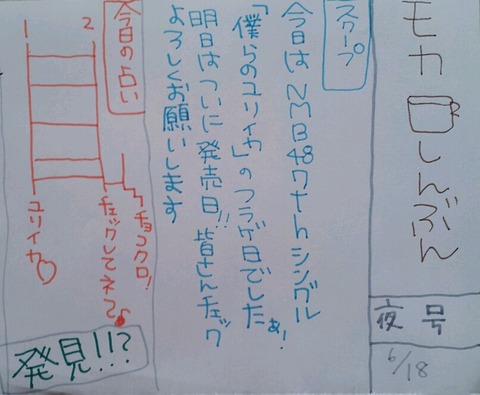 モカしんぶん
夜号
6/18
スクープ
今日はNMB48 7thシングル
「僕らのユリイカ」のフラゲ日でしたぁ!
明日はついに発売日!!皆さんチェック
よろしくお願いします
今日の占い
1
2
チョコクロ!
チェックしてネて♪
ユリイカ♡
発見!!?